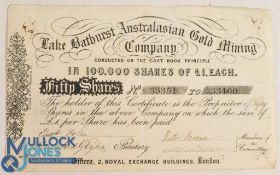 Lake Bathurst Australasian Gold Mining
Company.
CONDUCTED ON THE COST BOOK PRINCIPLE.
IN 100,000 SHARES OF £1. EACH.
Fifty Shares No 33351 TO 33400
The holder of this Certificate is the Proprietor of Fifty
Shares in the above Company on which the sum of
£1 per Share has been paid
Secretary
Members of
the
Committee
Offices, 2, ROYAL EXCHANGE BUILDINGS, London.
MULLOCK
JONES